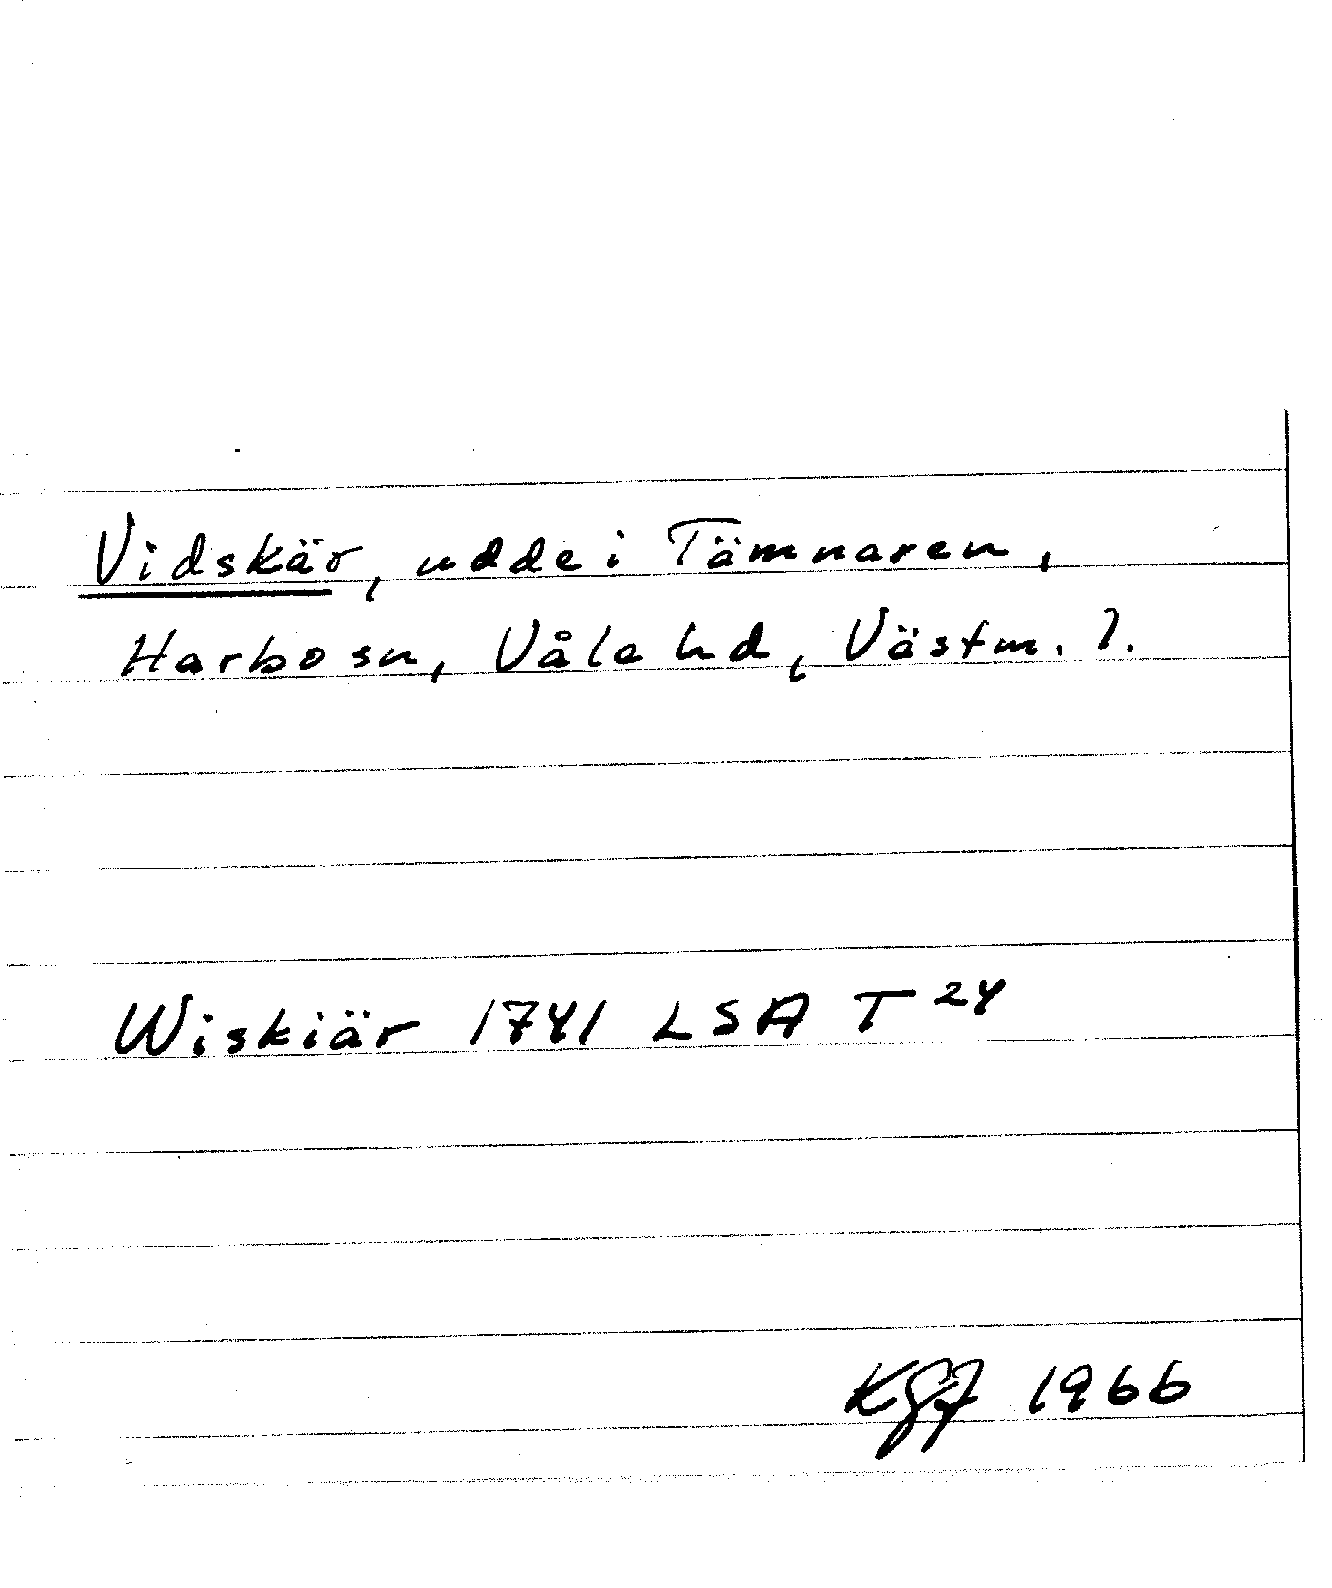 Vidskär, udde i Tämnaren,
Harbo sn, Våla hd, Västm. l.
Wiskiär 1741 LSA T 24
KGJ 1966